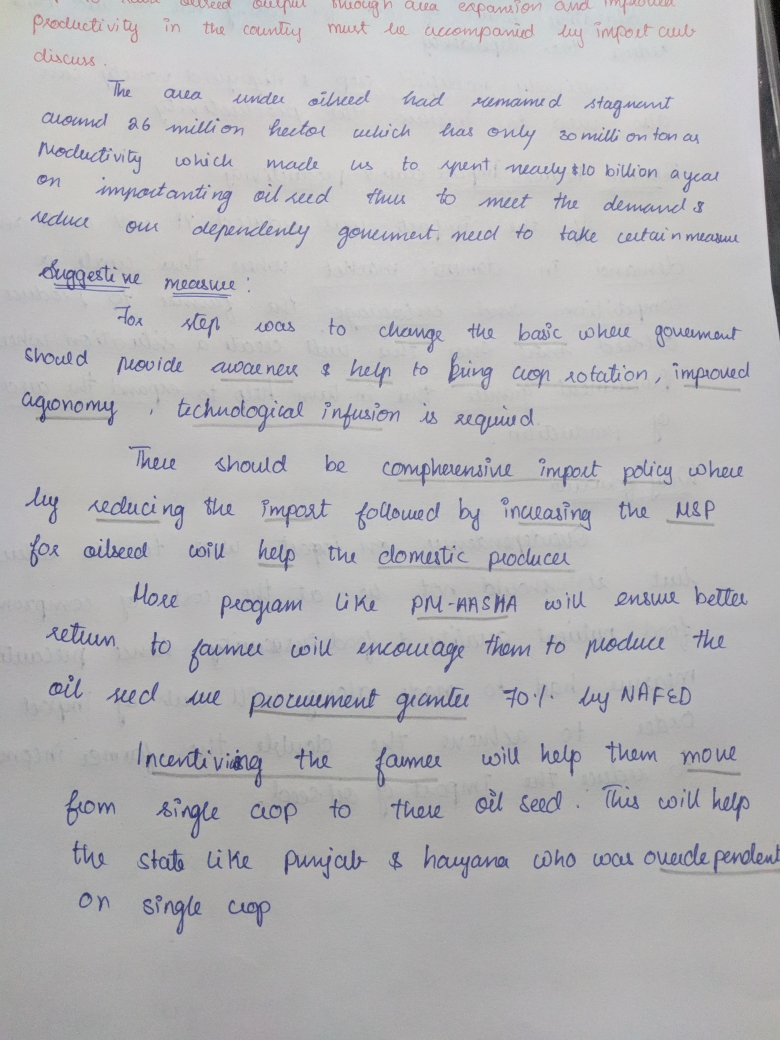 oilseed output through area expansion and improved
productivity in the country must be accompanied by import curb
discuss.
The area under oilseed had remained stagnant
around 26 million hector which has only 30 million ton as
productivity which made us to spent nearly $10 billion a year
on importanting oil seed thus to meet the demand &
reduce our dependently goverment need to take certain measure
Suggestive measure:
For step was to change the basic where goverment
should provide awareness & help to bring crop rotation, improved
agronomy, technological infusion is required
There should be compherensive import policy where
by reducing the import followed by increasing the MSP
for oilseed will help the domestic producer
More program like PM-AASHA will ensure better
return to farmer will encourage them to produce the
oil seed we procurement grantee 70% by NAFED
Incentiving the farmer will help them move
from single crop to there oil seed. This will help
the state like Punjab & haryana who was overdependent
on single crop